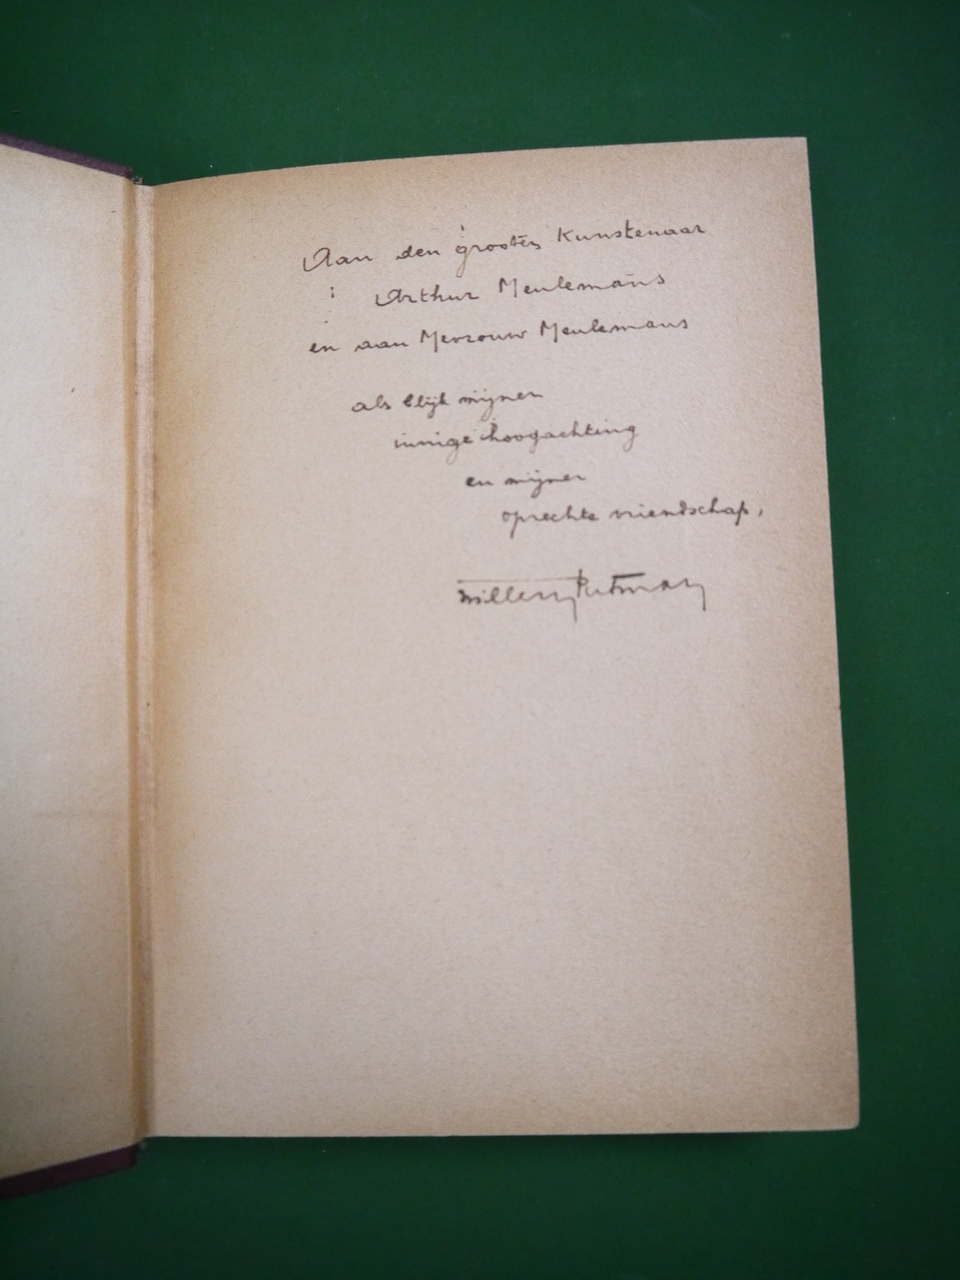 Aan den grooten Kunstenaar
Arthur Meulemans
en aan Mevrouw Meulemans
als blijk mijner
innige hoogachting
en mijner
oprechte vriendschap,
Willem Putman